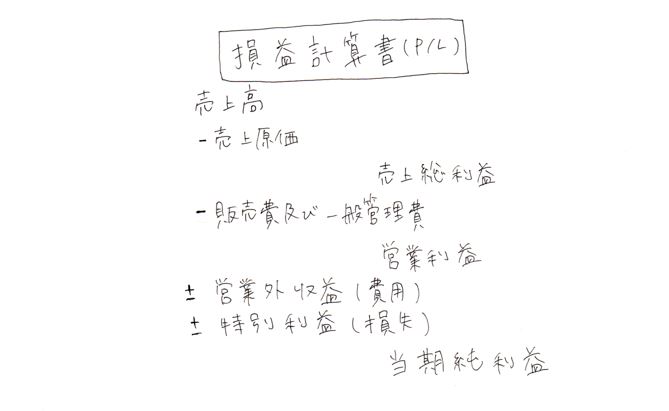 損益計算書(P/L)
売上高
-売上原価
売上総利益
-販売費及び一般管理費
営業利益
± 営業外収益(費用)
± 特別利益(損失)
当期純利益